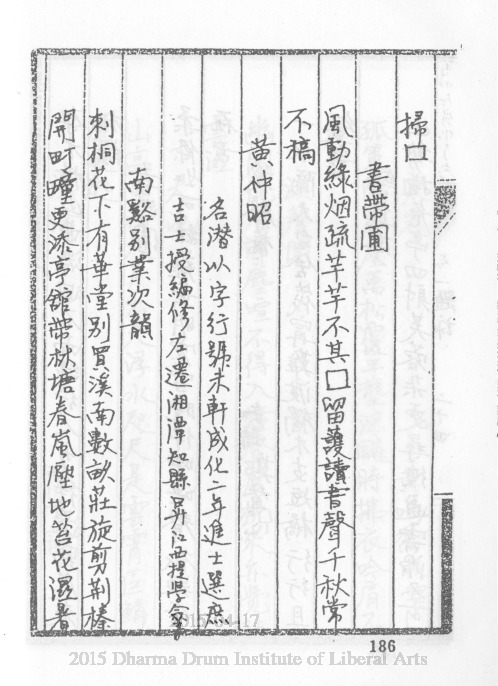 掃□
書帶圃
風動綠烟疏芊芊不其□留護讀書聲千秋常
不槁
黃仲昭
名潛以字行號未軒成化二年進士選庶
吉士授編修左遷湘潭知縣昇江西提學僉事
南谿別業次韻
刺桐花下有華堂別買溪南數畝莊旋剪荆榛
開町疃更添亭館帶林塘春嵐壓地苔花濕暑
186
2015 Dharma Drum Institute of Liberal Arts